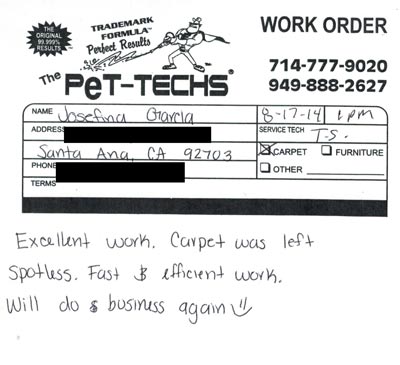 THE ORIGINAL
99.999%
RESULTS
TRADEMARK
FORMULA™
Perfect Results
The PeT-TECHS®
WORK ORDER
714-777-9020
949-888-2627
NAME Josefina Garcia
8-17-14 1 pm
ADDRESS
SERVICE TECH T-S.
Santa Ana, CA 92703
CARPET FURNITURE
PHONE
OTHER
TERMS
Excellent work. Carpet was left
spotless. Fast & efficient work.
Will do business again